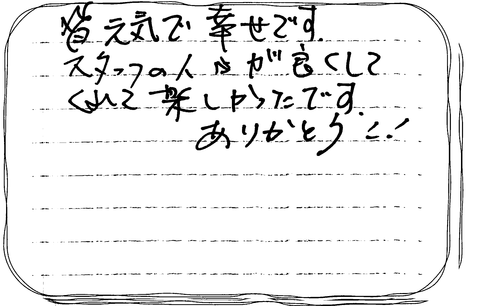 皆元気で幸せです.
スタッフの人達が良くして
くれて楽しかったです.
ありがとう!!